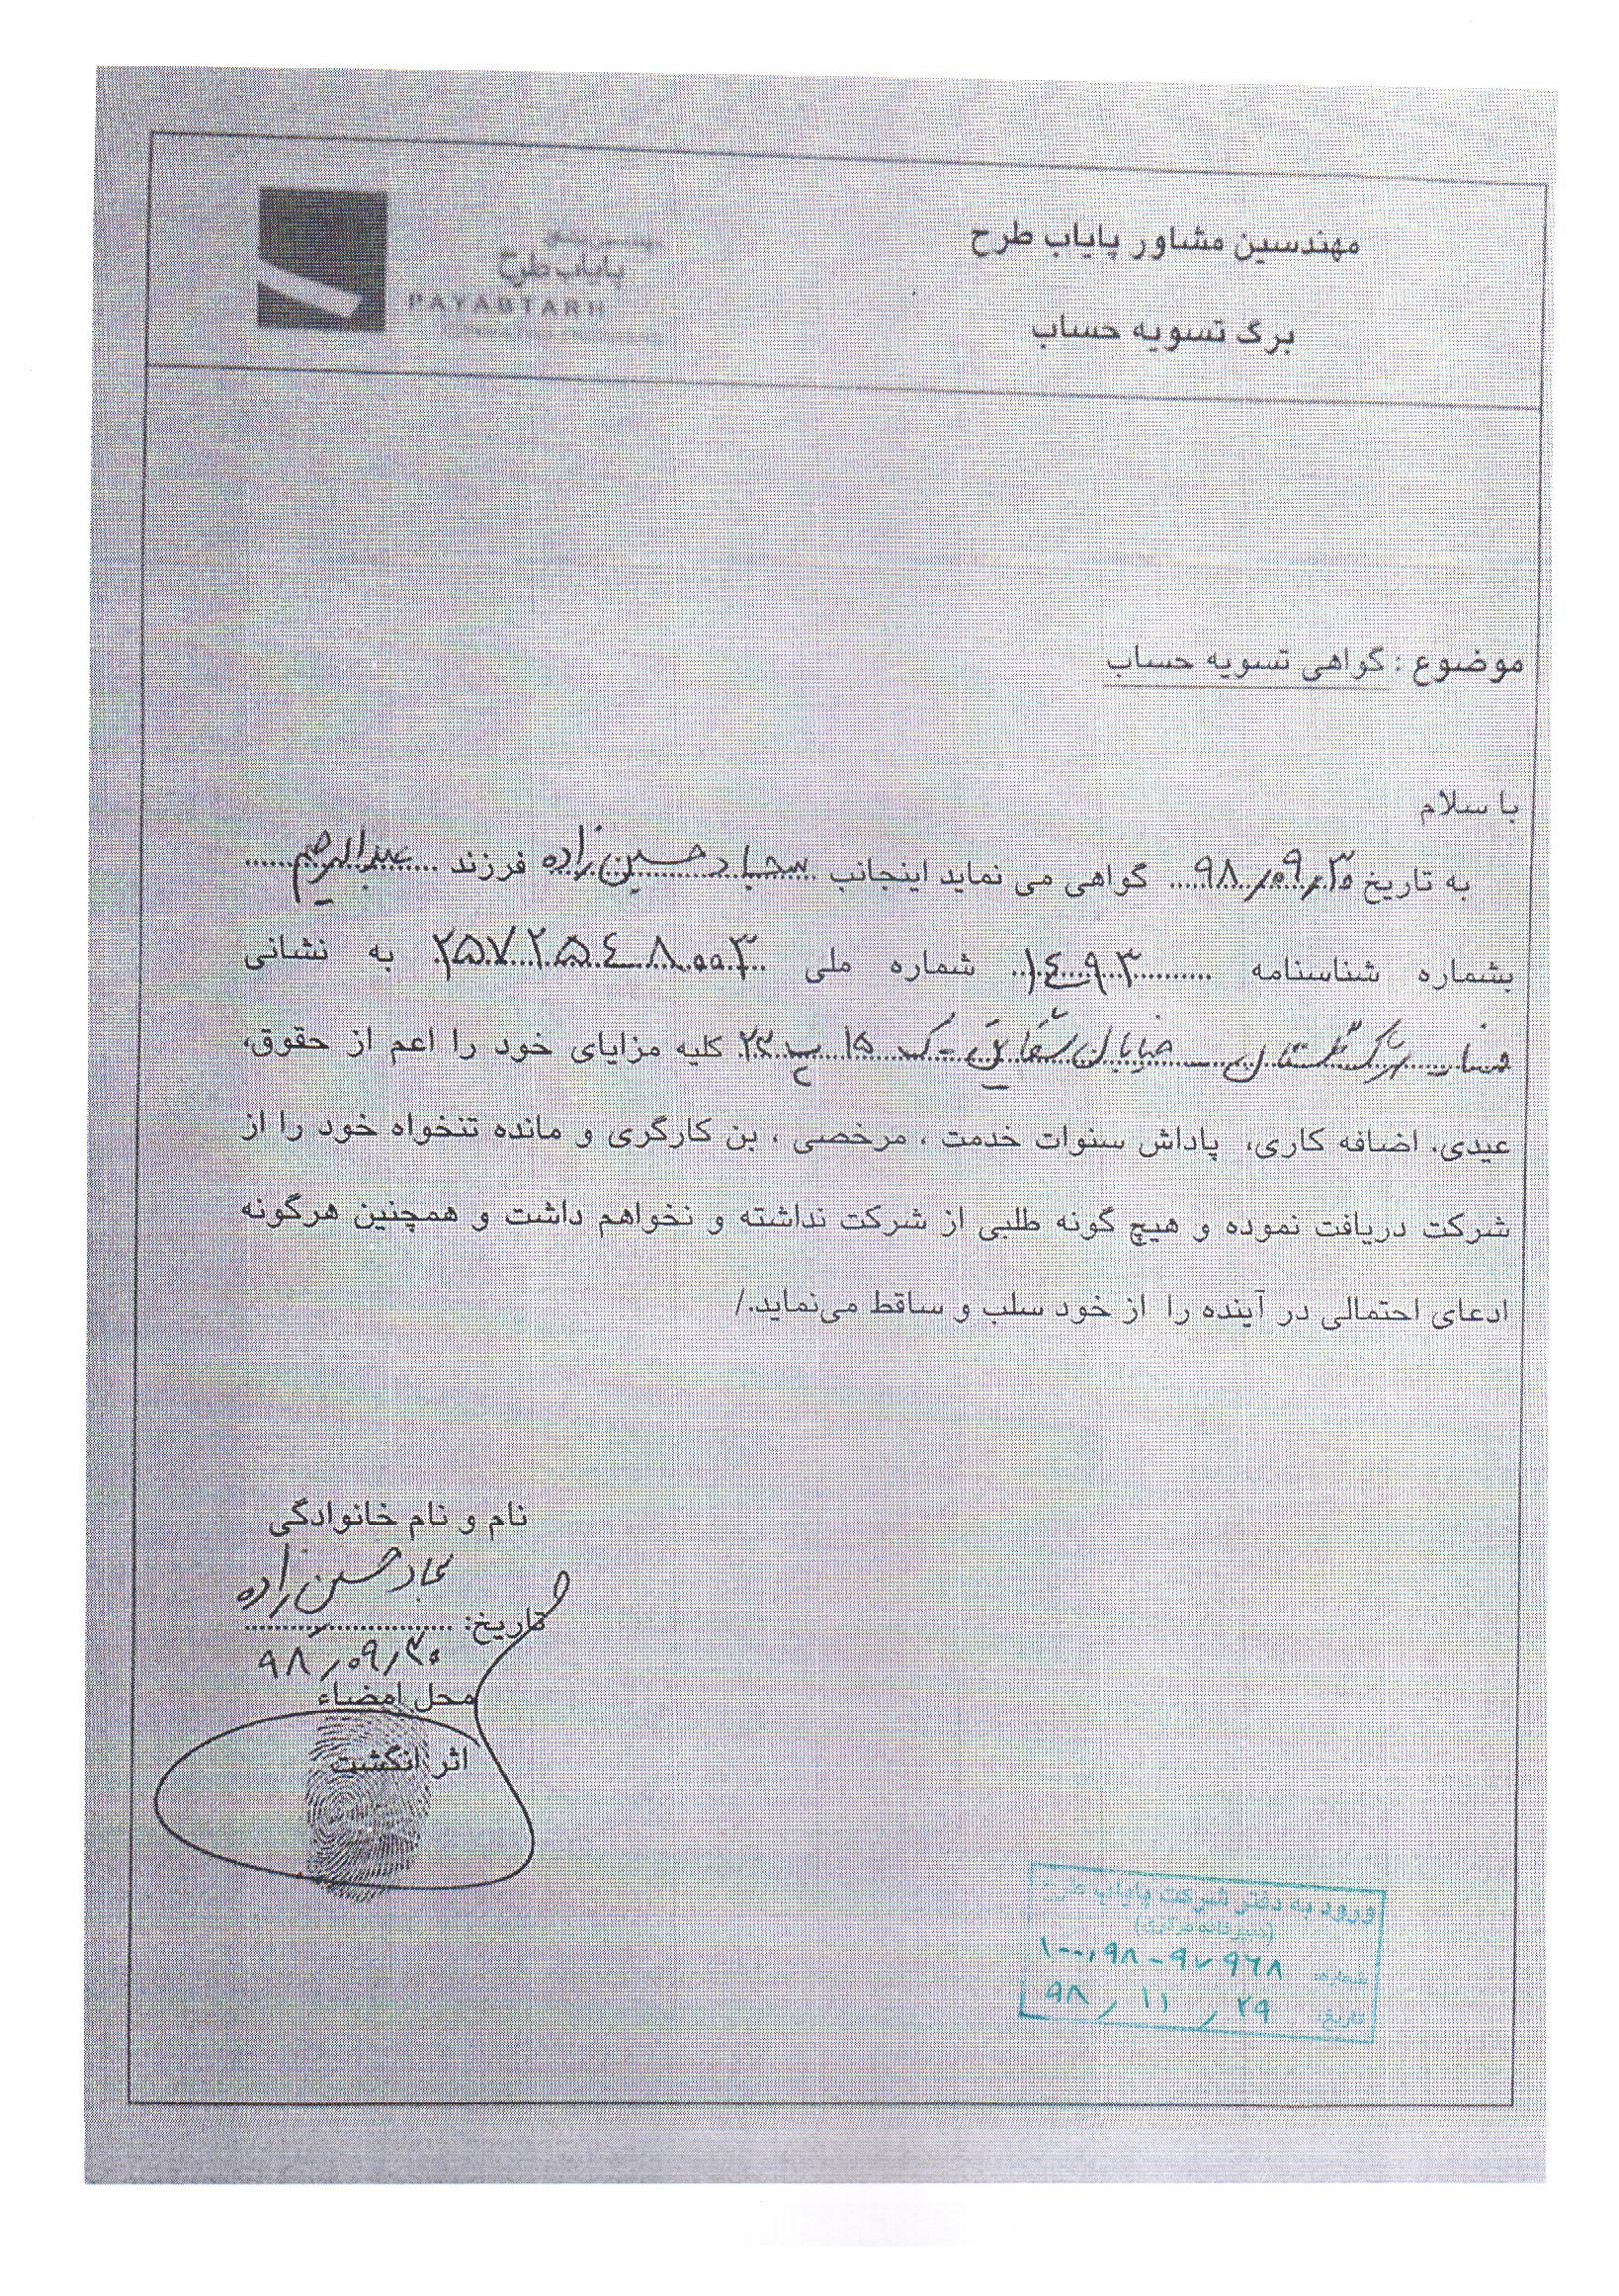 مهندسین مشاور پایاب طرح
پایاب طرح
PAYABTARH
برگ تسویه حساب
موضوع : گواهی تسویه حساب
با سلام
به تاریخ ۹۸/۰۹/۳۰ گواهی می نماید اینجانب سجاد حسین زاده فرزند عبدالرحیم
بشماره شناسنامه ۱۴۹۳ شماره ملی ۲۵۷۲۵۴۸۰۰۳ به نشانی
خیابان شقایق - ک ۱۵ پ ۲۳ کلیه مزایای خود را اعم از حقوق،
عیدی، اضافه کاری، پاداش سنوات خدمت ، مرخصی ، بن کارگری و مانده تنخواه خود را از
شرکت دریافت نموده و هیچ گونه طلبی از شرکت نداشته و نخواهم داشت و همچنین هرگونه
ادعای احتمالی در آینده را از خود سلب و ساقط می‌نماید./
نام و نام خانوادگی
سجاد حسین زاده
تاریخ:
۹۸/۰۹/۳۰
محل امضاء
اثر انگشت
ورود به دفتر شرکت پایاب طرح
(دبیرخانه مرکزی)
شماره: ۱۰۰،۹۸-۹۷۹۶۸
تاریخ: ۹۸/۱۱/۲۹